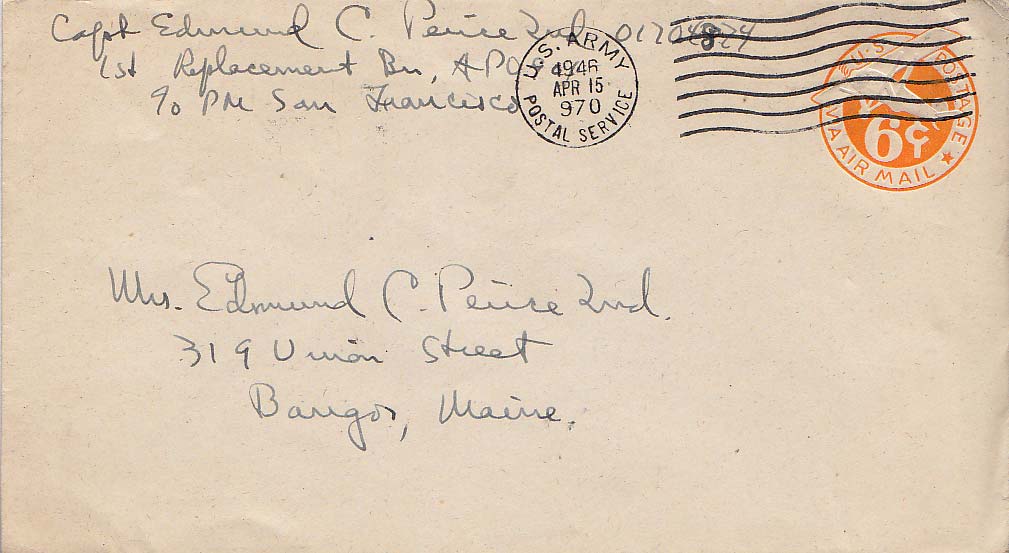 Capt Edmund C. Peirce 2nd 01704824
1st Replacement Bn, APO
c/o PM San Francisco
U.S. ARMY
1946
APR 15
970
POSTAL SERVICE
U.S. POSTAGE
6¢
VIA AIR MAIL
Mrs. Edmund C. Peirce 2nd.
319 Union Street
Bangor, Maine.